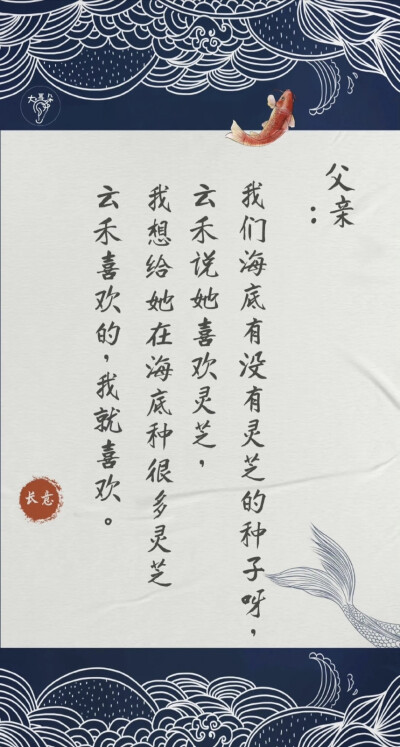 父亲：
我们海底有没有灵芝的种子呀，
云禾说她喜欢灵芝，
我想给她在海底种很多灵芝
云禾喜欢的，我就喜欢。
长意